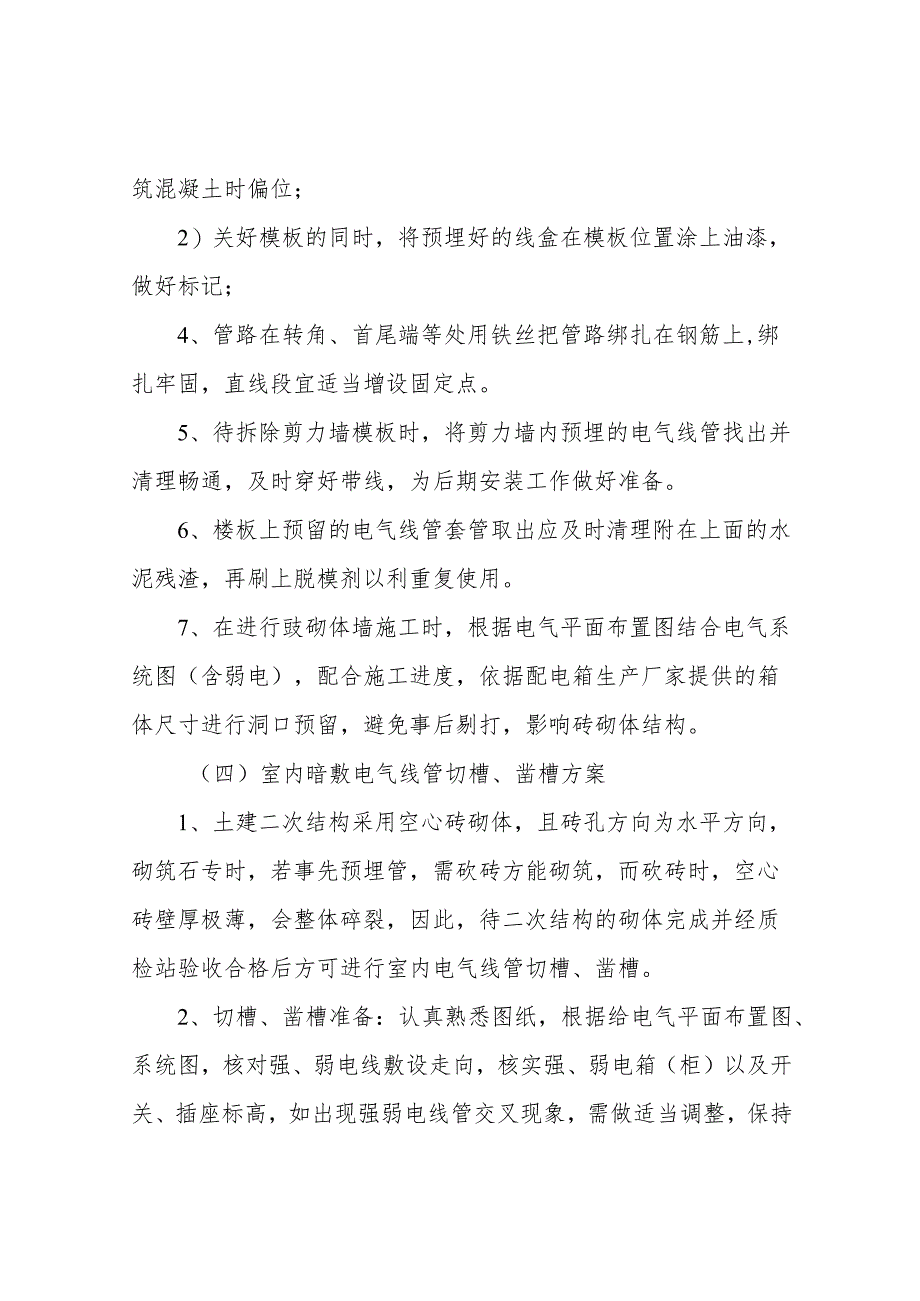 筑混凝土时偏位；
2）关好模板的同时，将预埋好的线盒在模板位置涂上油漆，
做好标记；
4、管路在转角、首尾端等处用铁丝把管路绑扎在钢筋上,绑
扎牢固，直线段宜适当增设固定点。
5、待拆除剪力墙模板时，将剪力墙内预埋的电气线管找出并
清理畅通，及时穿好带线，为后期安装工作做好准备。
6、楼板上预留的电气线管套管取出应及时清理附在上面的水
泥残渣，再刷上脱模剂以利重复使用。
7、在进行豉砌体墙施工时，根据电气平面布置图结合电气系
统图（含弱电），配合施工进度，依据配电箱生产厂家提供的箱
体尺寸进行洞口预留，避免事后剔打，影响砖砌体结构。
（四）室内暗敷电气线管切槽、凿槽方案
1、土建二次结构采用空心砖砌体，且砖孔方向为水平方向，
砌筑石专时，若事先预埋管，需砍砖方能砌筑，而砍砖时，空心
砖壁厚极薄，会整体碎裂，因此，待二次结构的砌体完成并经质
检站验收合格后方可进行室内电气线管切槽、凿槽。
2、切槽、凿槽准备：认真熟悉图纸，根据给电气平面布置图、
系统图，核对强、弱电线敷设走向，核实强、弱电箱（柜）以及开
关、插座标高，如出现强弱电线管交叉现象，需做适当调整，保持